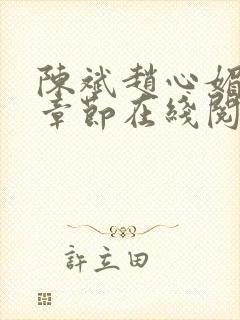 陳斌趙心媚
章節在綫閱
許立田